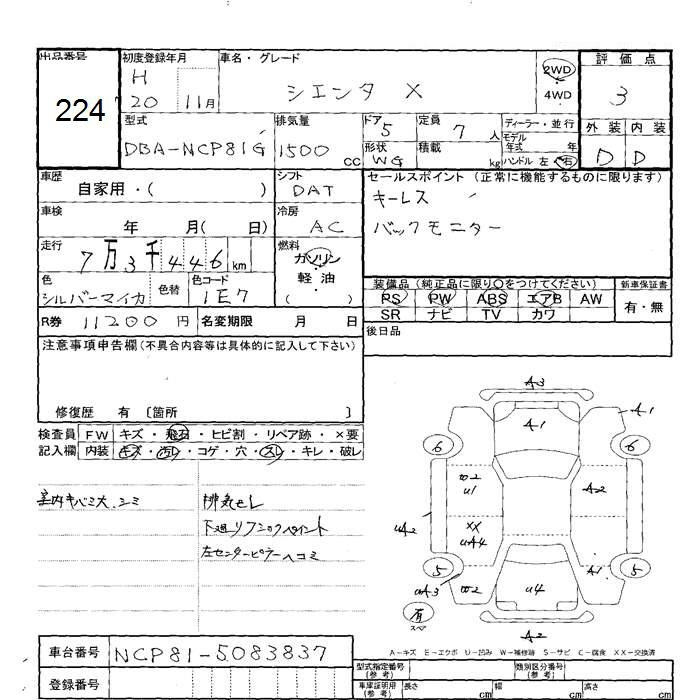 出品番号 初度登録年月 車名・グレード 評価点
224 H 20 11月 シエンタ X 2WD 4WD 3
型式 排気量 ドア 5 定員 7 人 ディーラー・並行 外装 内装
DBA-NCP81G 1500 cc 形状 WG 積載 kg モデル年式 年 ハンドル 左 右 D D
車歴 自家用・( ) シフト DAT セールスポイント (正常に機能するものに限ります)
車検 年 月( 日) 冷房 AC キーレス
走行 7万3千446km 燃料 ガソリン 軽油 ( ) バックモニター
色 シルバーマイカ 色替 色コード 1E7 装備品 (純正品に限り○をつけてください) 新車保証書
PS PW ABS エアB AW 有・無
R券 11200 円 名変期限 月 日 SR ナビ TV カワ
注意事項申告欄(不具合内容等は具体的に記入して下さい) 後日品
修復歴 有 〔箇所 〕
検査員 FW キズ・飛石・ヒビ割・リペア跡・×要
記入欄 内装 キズ・汚レ・コゲ・穴・スレ・キレ・破レ
室内キバミ大、シミ 排気モレ
下廻リフシックペイント
左センターピラーヘコミ
A3
A1 A1
6 6
W2
U1 A2
XX
UA2 UA4
5 A1 5
UA3 W2 U4
有
スペア A2
A-キズ E-エクボ U-凹み W-補修跡 S-サビ C-腐食 XX-交換済
車台番号 NCP81-5083837 型式指定番号(参考) 類別区分番号(参考)
登録番号 車庫証明用(参考) 長さ cm 幅 cm 高さ cm